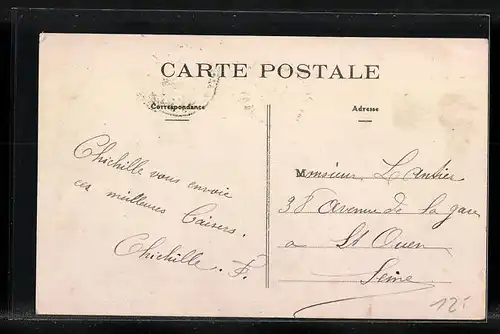 CARTE POSTALE
Correspondance
Adresse
Chichille vous envoie
ces meilleurs Baisers.
Chichille. P.
Monsieur Lantier
38 avenue de la gare
a St Ouen
Seine
125